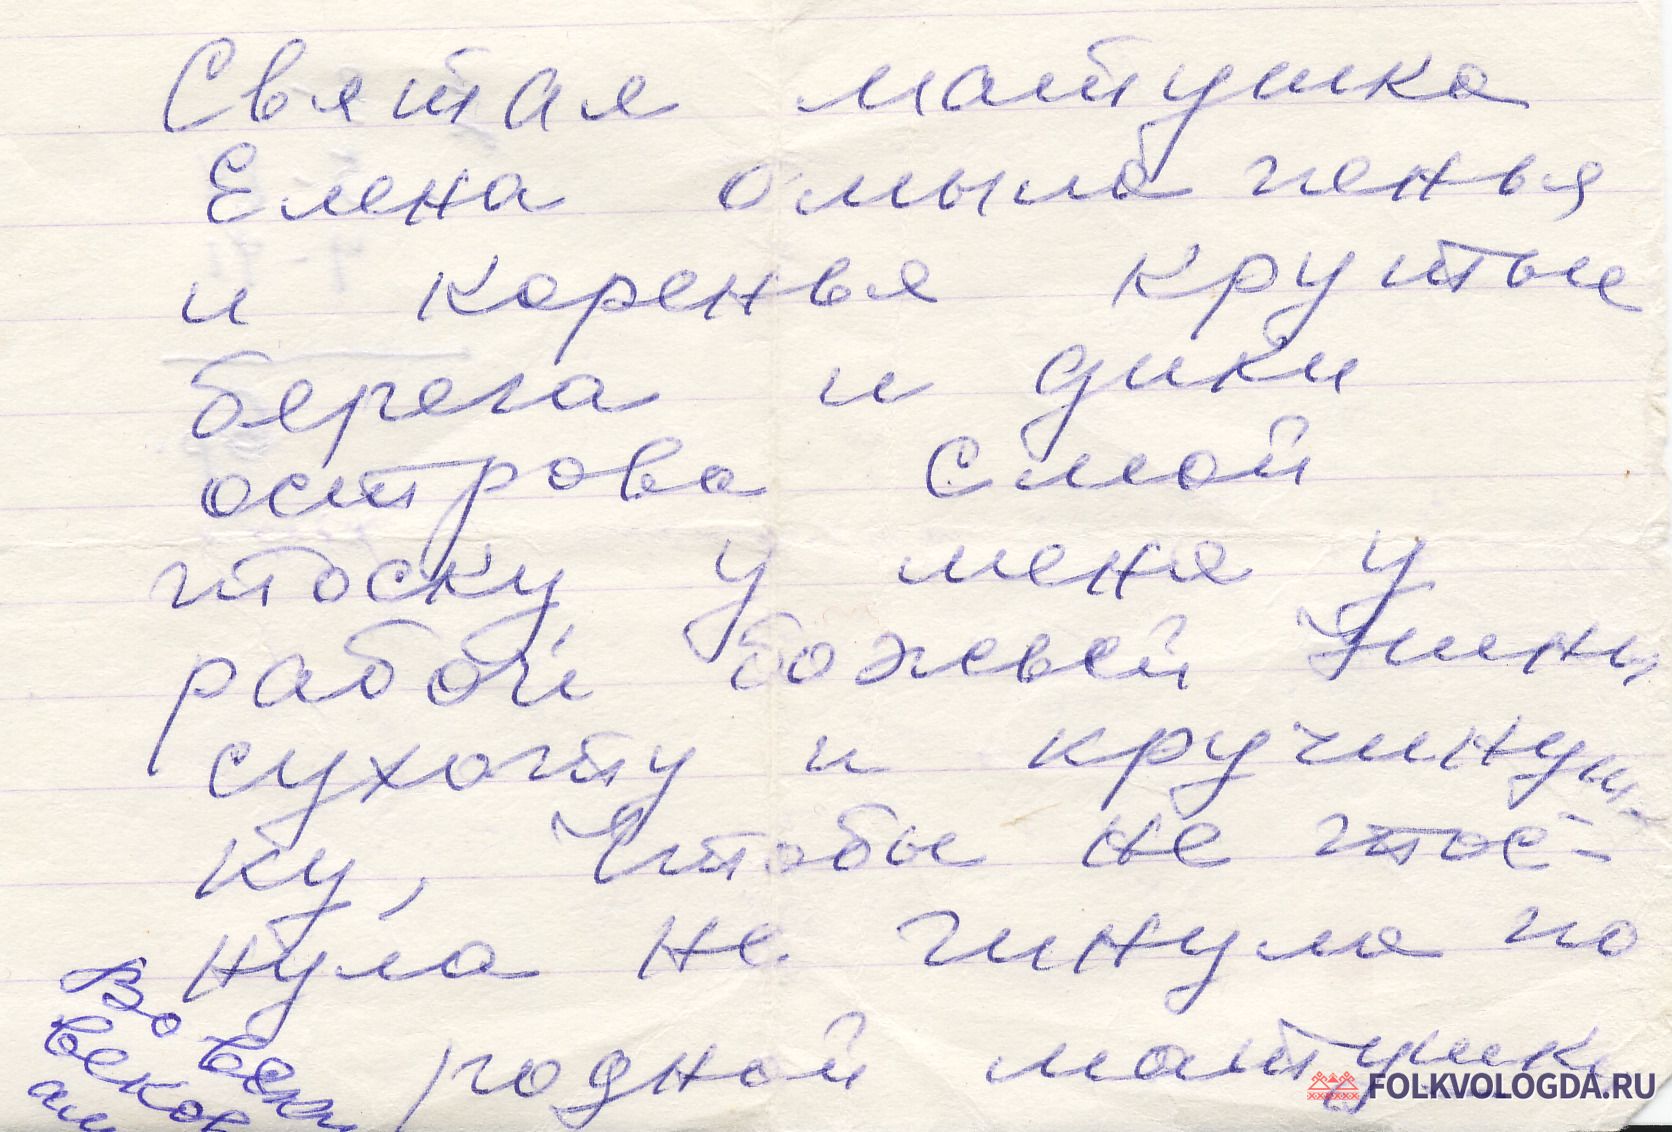 Святая матушка
Елена омыла пенья
и коренья крутые
берега и дики
острова Смой
тоску у меня у
рабой божьей Зины
сухоту и кручинуш-
ку, Чтобы не тос-
нула не гинула по
родной матушки
Во веки
веков
ам
FOLKVOLOGDA.RU